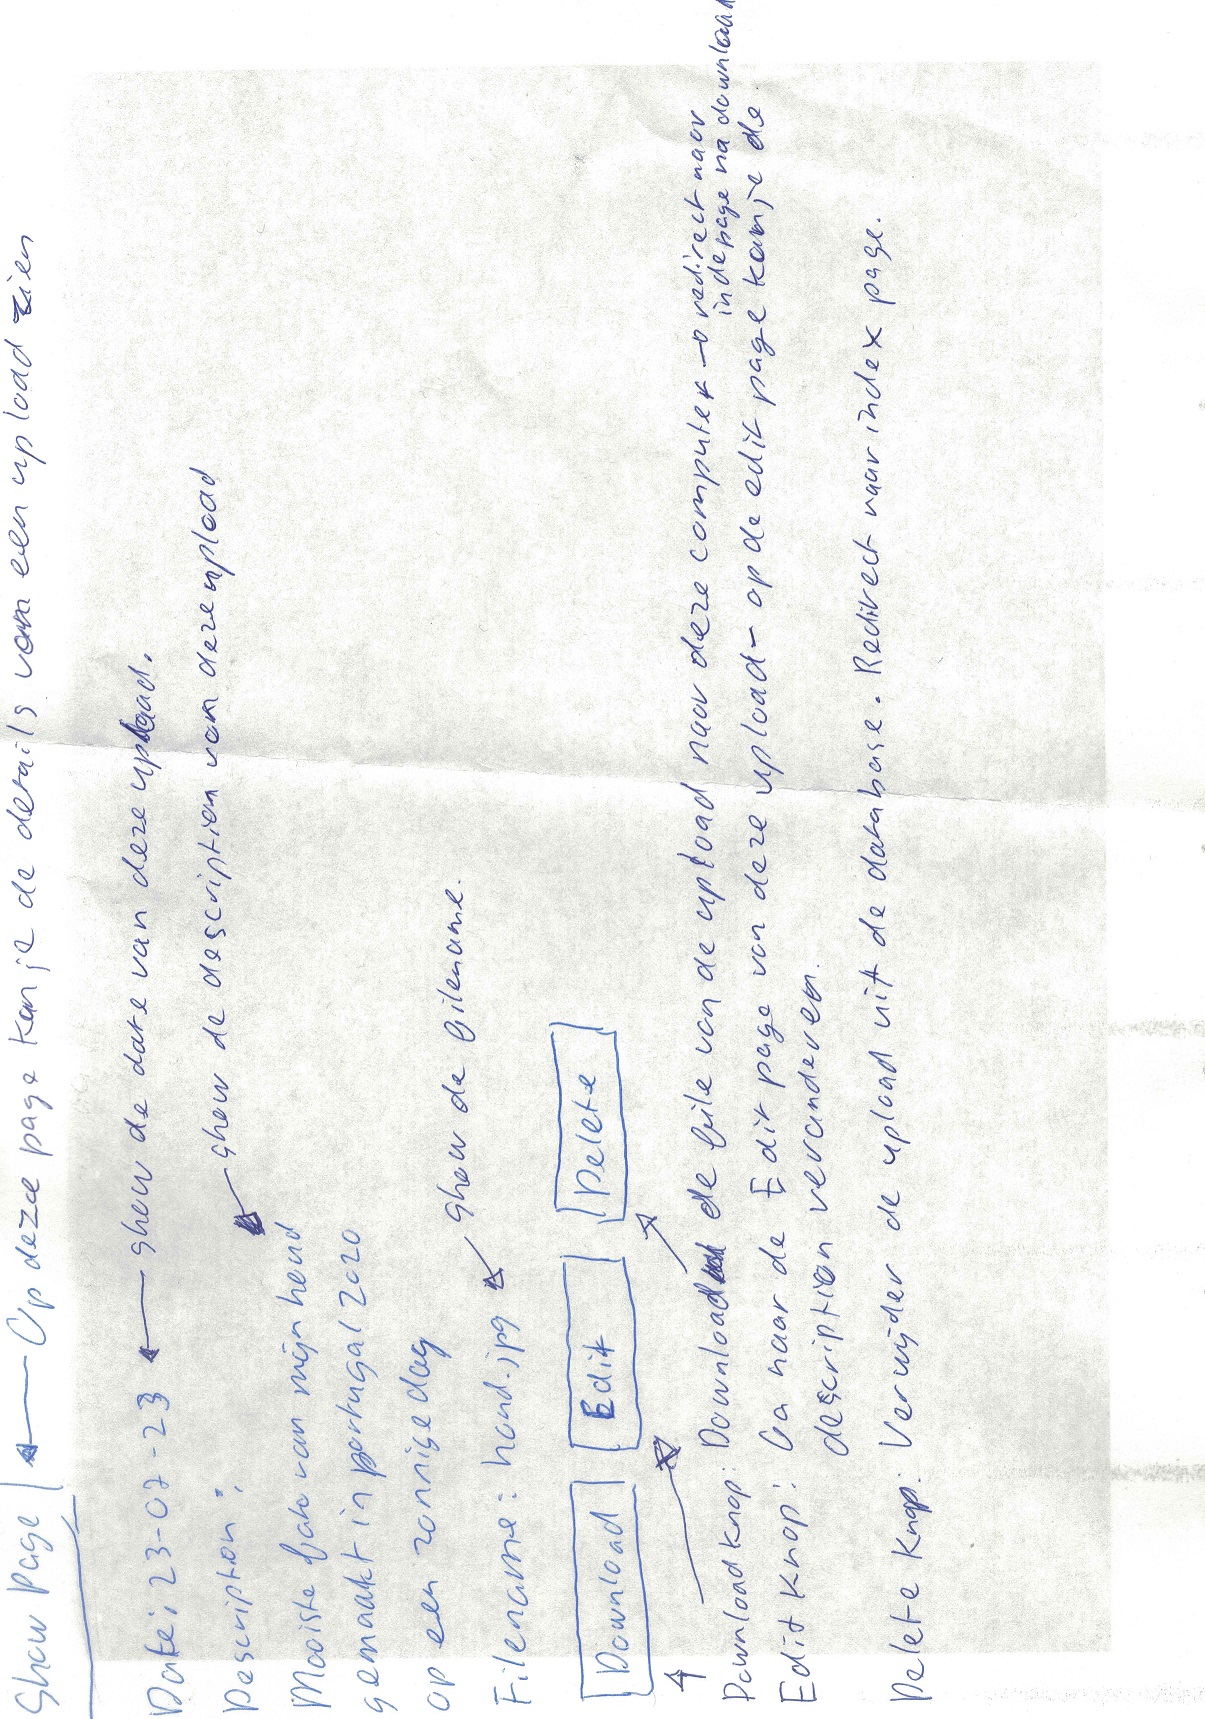 Show Page
Op deze page kan je de details van een upload zien
Date: 23-07-23
show de date van deze upload.
Description:
show de description van deze upload
Mooiste foto van mijn hond
gemaakt in portugal 2020
op een zonnige dag
Filename: hond.jpg
show de filename.
Download
Edit
Delete
Download Knop: Download de file van de upload naar deze computer → redirect naar
inde page na download
Edit Knop: Ga naar de Edit page van deze upload - op de edit page kan je de
description veranderen.
Delete Knop: Verwijder de upload uit de database. Redirect naar index page.